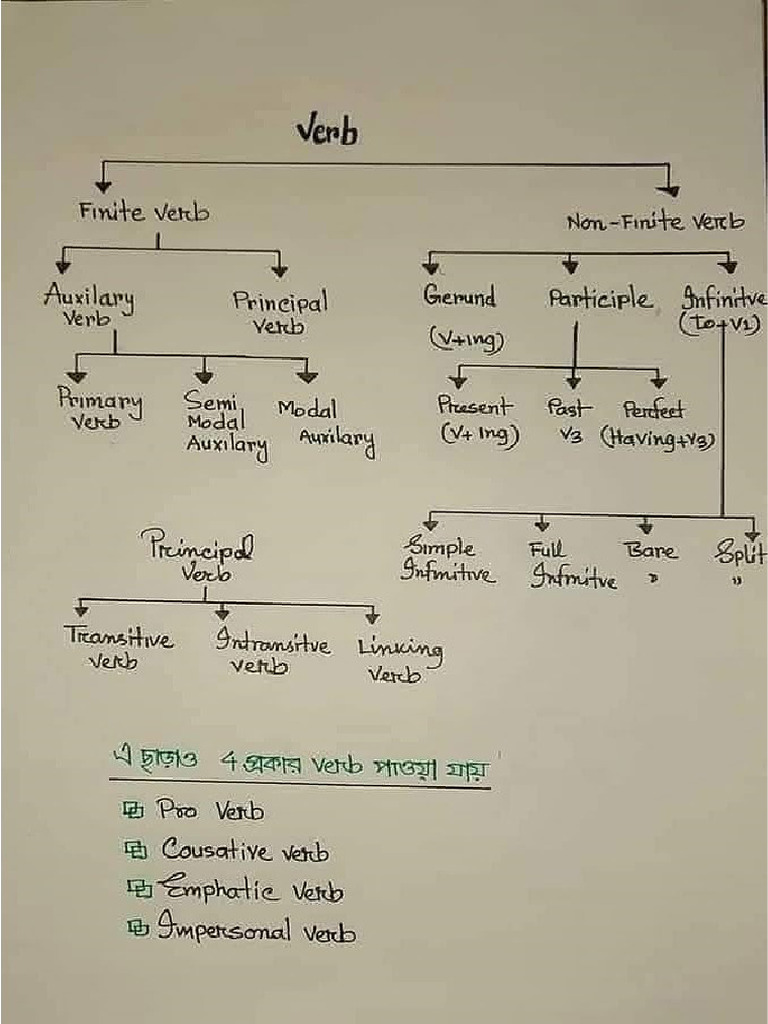 Verb
Finite Verb
Non-Finite Verb
Auxilary Verb
Principal Verb
Gerund (V+ing)
Participle
Infinitve (To+V1)
Primary Verb
Semi Modal Auxilary
Modal Auxilary
Present (V+ing)
Past V3
Perfect (Having+V3)
Simple Infinitive
Full Infinitve
Bare "
Split "
Principal Verb
Transitive verb
Intransitve verb
Linking Verb
এ ছাড়াও 4 প্রকার verb পাওয়া যায়
Pro Verb
Cousative verb
Emphatic Verb
Impersonal verb